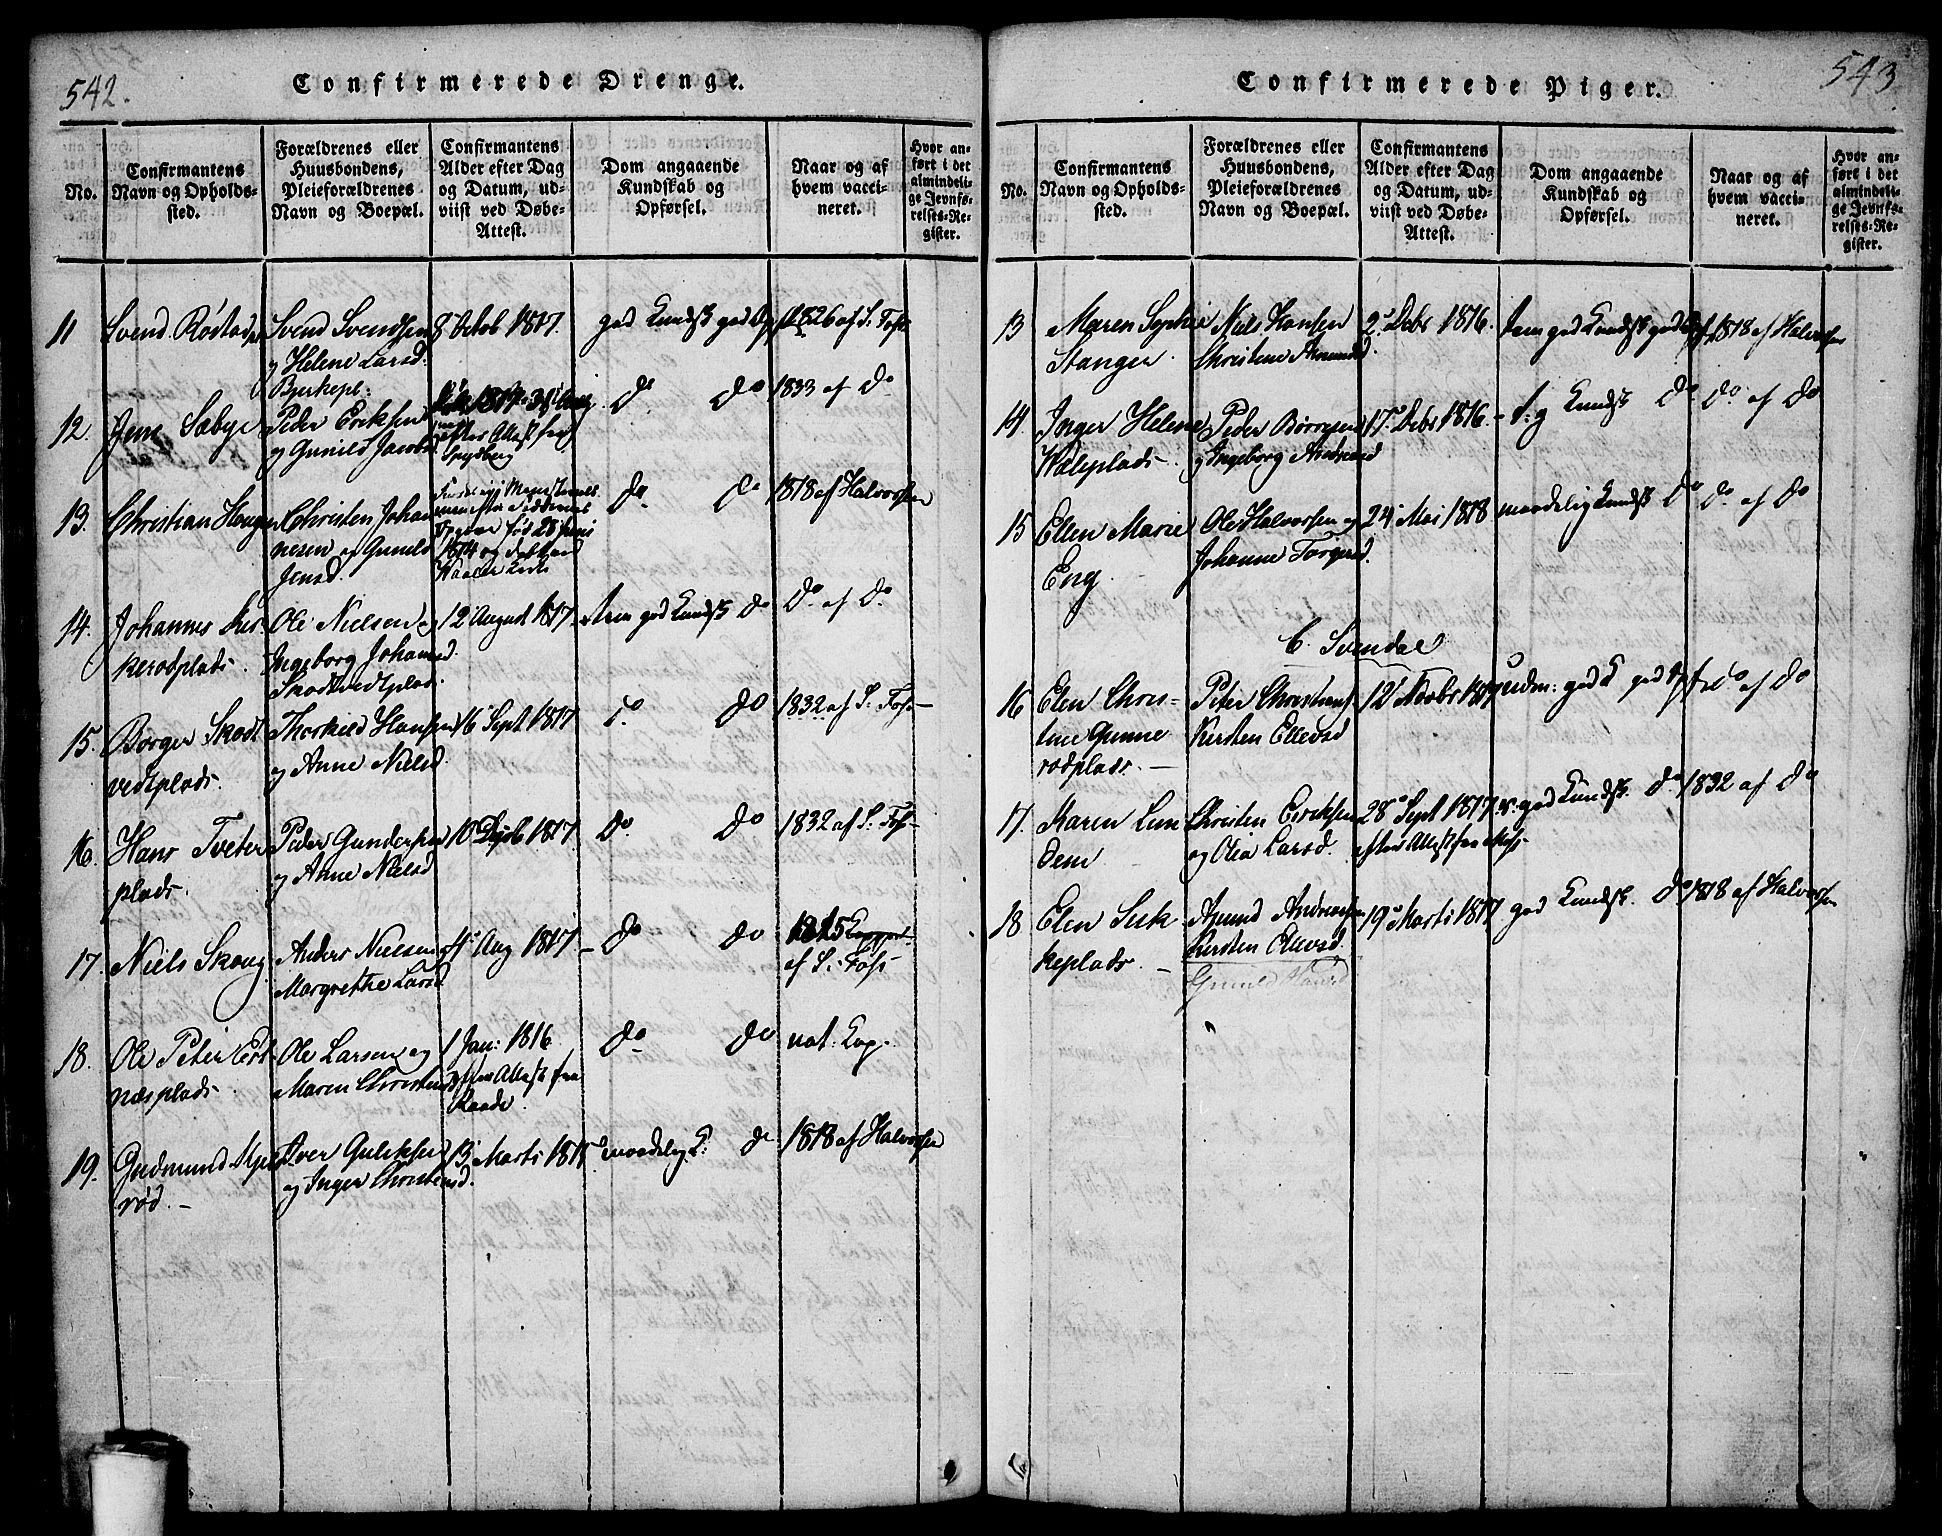 542.
Confirmerede Drenge.
No.
Confirmantens
Navn og Opholds-
sted.
Forældrenes eller
Huusbondens,
Pleieforældrenes
Navn og Boepæl.
Confirmantens
Alder efter Dag
og Datum, ud-
viist ved Døbe-
Attest.
Dom angaaende
Kundskab og
Opførsel.
Naar og af
hvem vacci-
neret.
Hvor an-
ført i det
almindeli-
ge Jevnfø-
relses-Re-
gister.
11
Svend Røstadpl
Svend Svendsen
og Helene Larsd.
Bjerkepl:
8 Octob 1817.
god Kundsk god Opf
1826 af S. Foss
12.
Jens Sæbye
Peder Eriksen
og Gunild Jacobsd
efter Attest fra
Spydberg
do. do
1833 af do
13.
Christian Haugen
Christen Johan
nesen og Gunild
Jensd.
født 28 Juni
1814 og døbt
Waaler Kirke
do. do
1818 af Halvorsen
14.
Johannes Kir-
kerødplads.
Ole Nielsen og
Ingeborg Johansd.
Skodtvedtplads
12 August 1817
tem god Kundsk do
do. af do.
15.
Børger Skodt
vedtplads.
Thorkild Hansen
og Anne Nielsd
16 Sept 1817
do do
1832 af S. Foss
16.
Hans Tveter
plads.
Peder Gundersen
og Anne Nielsd
10 1817
do do
1832 af S. Foss
17.
Niels Skoug
Anders Nielsen
Margrethe Larsd
4 Aug 1817
do do
1815
af S. Foss
18.
Ole Peter Est
næsplads
Ole Larsen og
Maren Christensd
1 Jan: 1816
efter Attest fra
Raade.
do do
nat: Kop.
19.
Gudmund
rød.
Iver Gulliksen
og Inger Christensd.
13 Marti 1818
maadelig K: do
1818 af Halvorsen
543
Confirmerede Piger.
No.
Confirmantens
Navn og Opholds-
sted.
Forældrenes eller
Huusbondens,
Pleieforældrenes
Navn og Boepæl.
Confirmantens
Alder efter Dag
og Datum, ud-
viist ved Døbe-
Attest.
Dom angaaende
Kundskab og
Opførsel.
Naar og af
hvem vacci-
neret.
Hvor an-
ført i det
almindeli-
ge Jevnfø-
relses-Re-
gister.
13
Maren Sophie
Stanger.
Niels Hansen
Christene Amundsd.
2 Debr 1816.
tem god Kundsk god Opf
1818 af Halvorsen
14
Inger Helene
Wæleplads
Peder Børresen
og Ingeborg Andreasd
17 Debr 1816
t: g Kundsk do
do. af do
15
Ellen Marie
Eng.
Ole Halvorsen og
Johanne Torgersd.
24 Mai 1818
maadelig Kundsk do
do. af do
C. Svendal
16
Elen Chris-
tine Gunne
rødplads.
Peter Christians
Kirsten Ellevsd
12 Novbr 1817
udm: god K god Opf
do af do
17.
Karen Lun
dem
Christen Eriksen
og Olia Larsd.
28 Sept 1817
efter Attest fra Moss
god Kundsk. do
1832 af do
18
Elen Susk-
keplads.
Amund Andersen
Kirsten Ellevsd
Gunild Hansd
19 Marti 1817
god Kundsk. do
1818 af Halvorsen